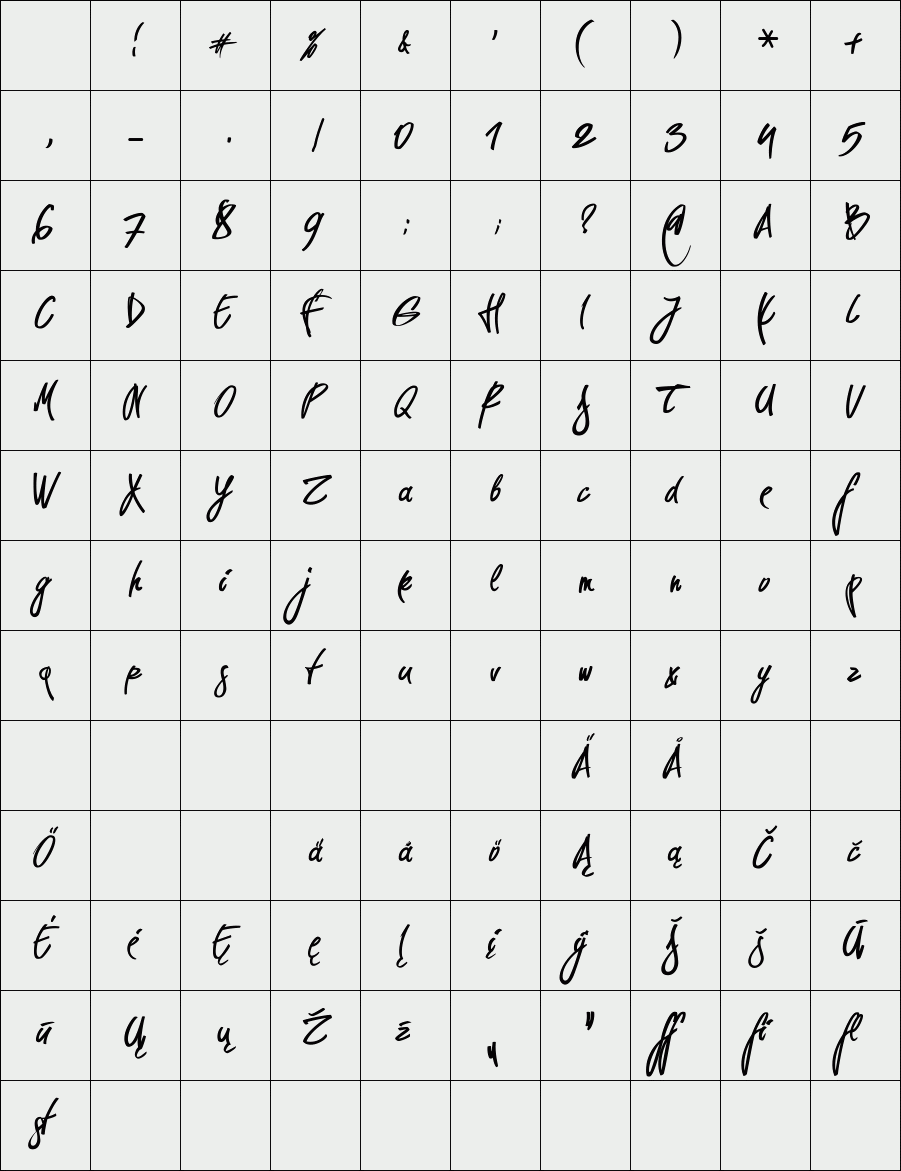 ! # % & ' ( ) * +
, - . / 0 1 2 3 4 5
6 7 8 9 : ; ? @ A B
C D E F G H I J K L
M N O P Q R S T U V
W X Y Z a b c d e f
g h i j k l m n o p
q r s t u v w x y z
Ä Å
Ö ä å ö Ą ą Č č
Ė ė Ę ę Į į ij Š š Ū
ū Ų ų Ž ž „ " ff fi fl
st